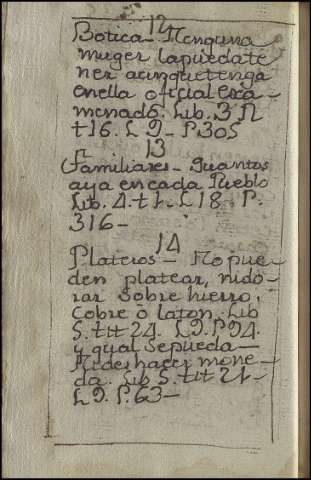 12
Botica – Ninguna
muger la puedate
ner aunque tenga
enella oficial exa
menado. Lib. 3
t 16. L 9 – P. 305
13
Familiares – Quantos
aya en cada Pueblo
Lib. 4. t 1. L 18. P.
316 –
14
Plateros – No pue
den platear, ni do
rar sobre hierro,
Cobre ò laton. Lib
5. tit 24. L 9. P 94.
y qual sepueda –
Ni deshacer mone
da. Lib 5. tit 21 –
L 9. P. 63 –